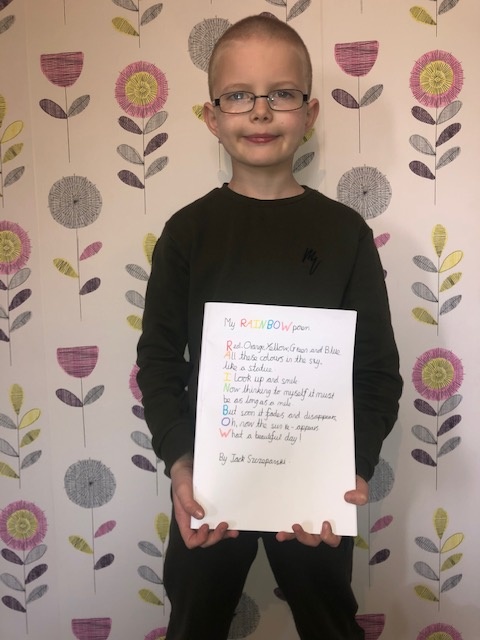 My RAINBOW poem
Red, Orange, Yellow, Green and Blue
All these colours in the sky,
like a statue
I look up and smile
Now thinking to myself it must
be as long as a mile
But soon it fades and disappears
Oh, now the sun re-appears
What a beautiful day!
By Jack Szczepanski